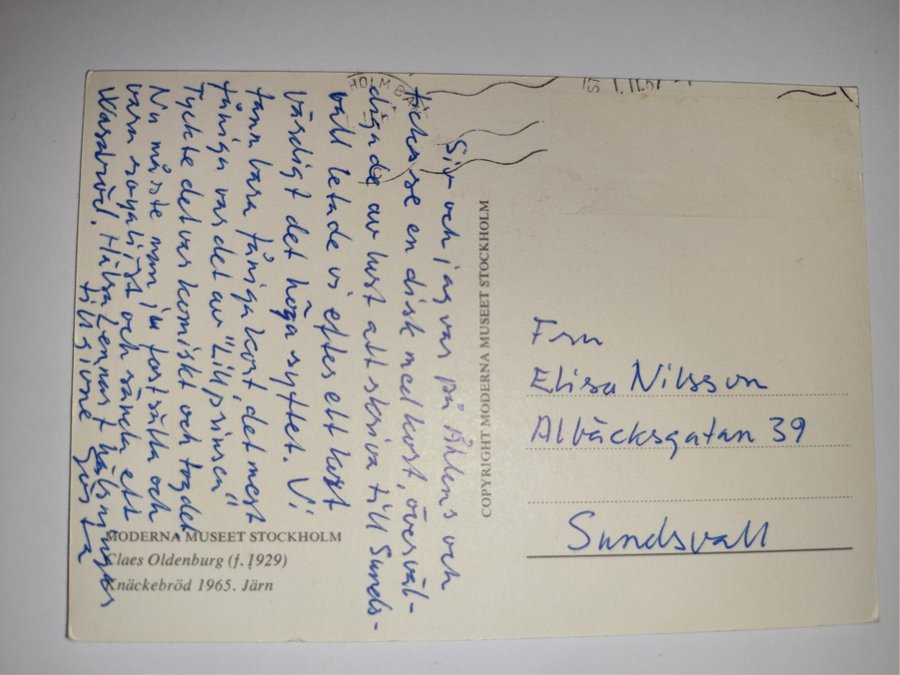 Siv och jag var på Åhlens och
fick se en disk med kort, överväl-
digade av lust att skriva till Sunds-
vall letade vi efter ett kort
värdigt det höga syftet. Vi
fann bara fåniga kort, det mest
fåniga var det av "Lillprinsen"
Tyckte det var komiskt och tog det
Nu måste man ju fortsätta och
vara rojalist och sända ett
Hälsa Lennart hälsningar
tillgivne Gösta
MODERNA MUSEET STOCKHOLM
Claes Oldenburg (f. 1929)
Knäckebröd 1965. Järn
COPYRIGHT MODERNA MUSEET STOCKHOLM
Fru
Elisa Nilsson
Albäcksgatan 39
Sundsvall